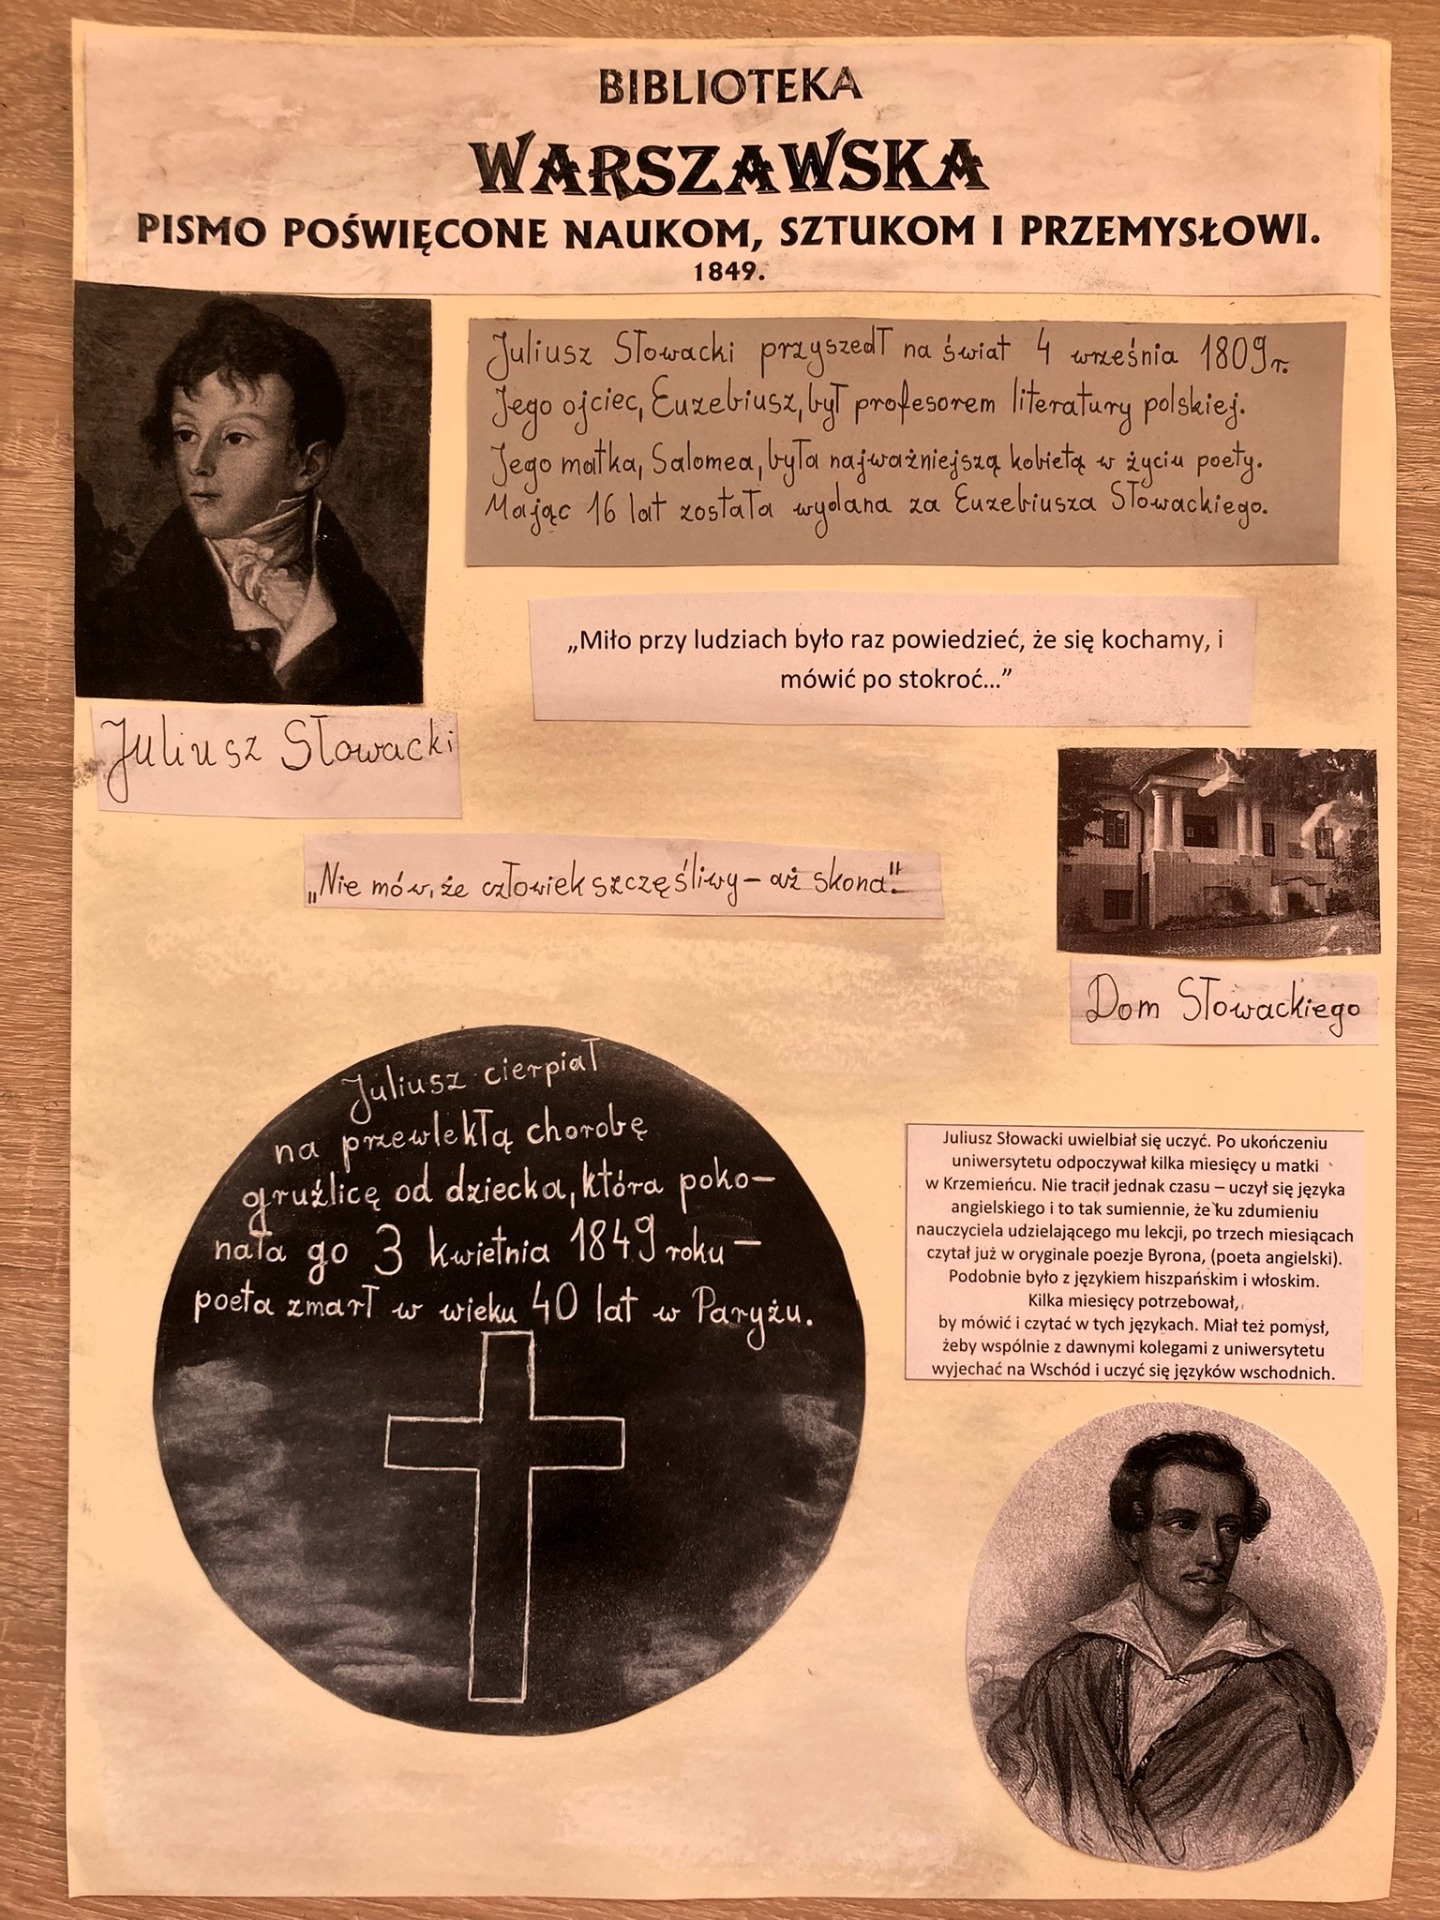 BIBLIOTEKA
WARSZAWSKA
PISMO POŚWIĘCONE NAUKOM, SZTUKOM I PRZEMYSŁOWI.
1849.
Juliusz Słowacki przyszedł na świat 4 września 1809r.
Jego ojciec, Euzebiusz, był profesorem literatury polskiej.
Jego matka, Salomea, była najważniejszą kobietą w życiu poety.
Mając 16 lat została wydana za Euzebiusza Słowackiego.
„Miło przy ludziach było raz powiedzieć, że się kochamy, i
mówić po stokroć...”
Juliusz Słowacki
„Nie mów, że człowiek szczęśliwy – aż skona".
Dom Słowackiego
Juliusz cierpiał
na przewlekłą chorobę
gruźlicę od dziecka, która poko-
nała go 3 kwietnia 1849 roku –
poeta zmarł w wieku 40 lat w Paryżu.
Juliusz Słowacki uwielbiał się uczyć. Po ukończeniu
uniwersytetu odpoczywał kilka miesięcy u matki
w Krzemieńcu. Nie tracił jednak czasu – uczył się języka
angielskiego i to tak sumiennie, że ku zdumieniu
nauczyciela udzielającego mu lekcji, po trzech miesiącach
czytał już w oryginale poezje Byrona, (poeta angielski).
Podobnie było z językiem hiszpańskim i włoskim.
Kilka miesięcy potrzebował,
by mówić i czytać w tych językach. Miał też pomysł,
żeby wspólnie z dawnymi kolegami z uniwersytetu
wyjechać na Wschód i uczyć się języków wschodnich.